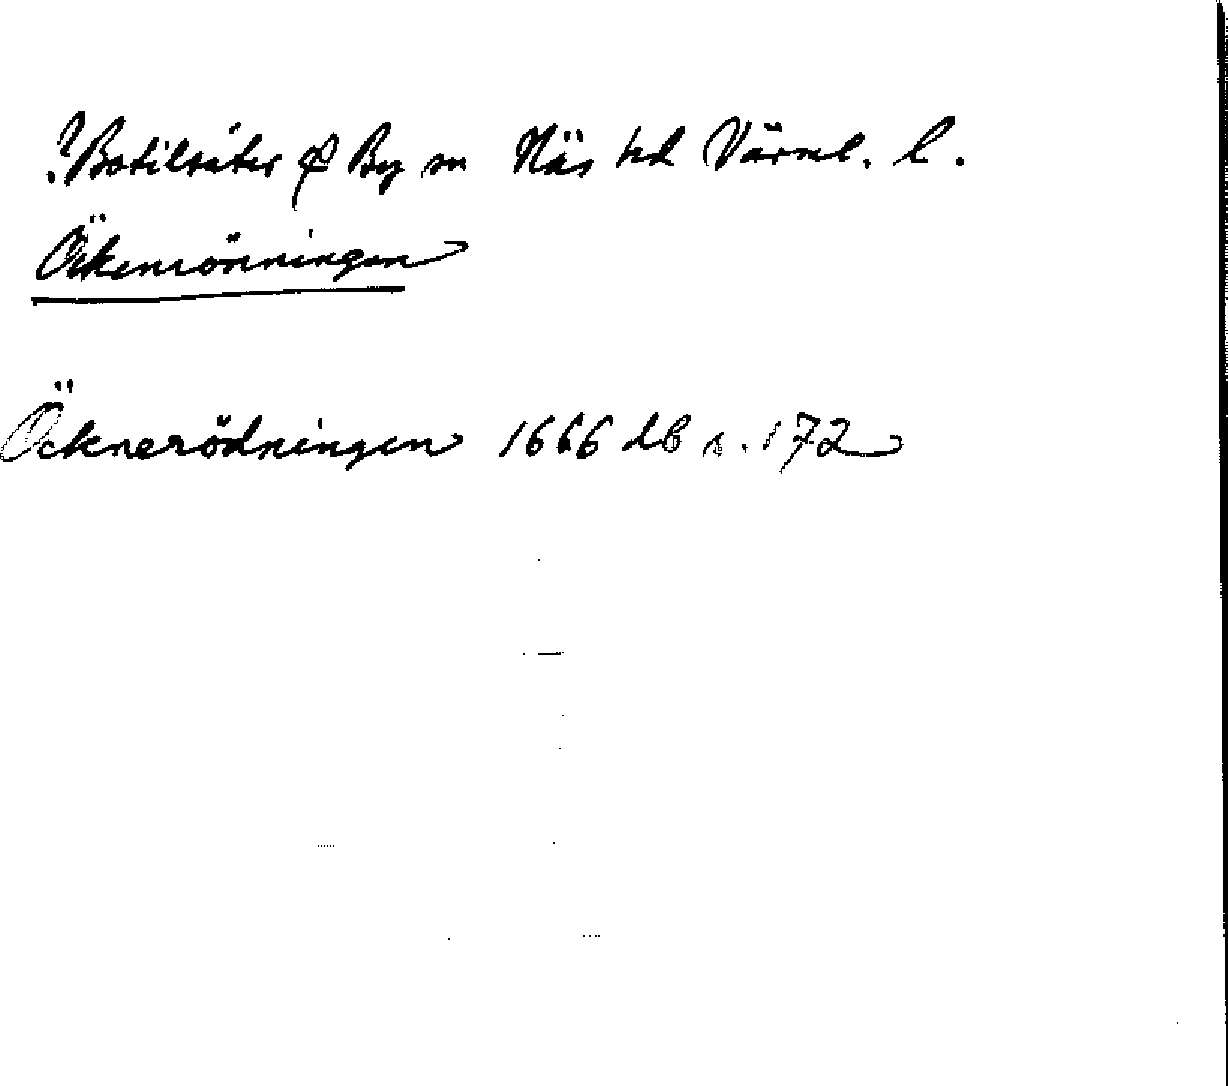 ?Botilsäter φ By sn Näs hd Värml. l.
Ökenrönningen
Öcknerödningen 1666 db s. 172